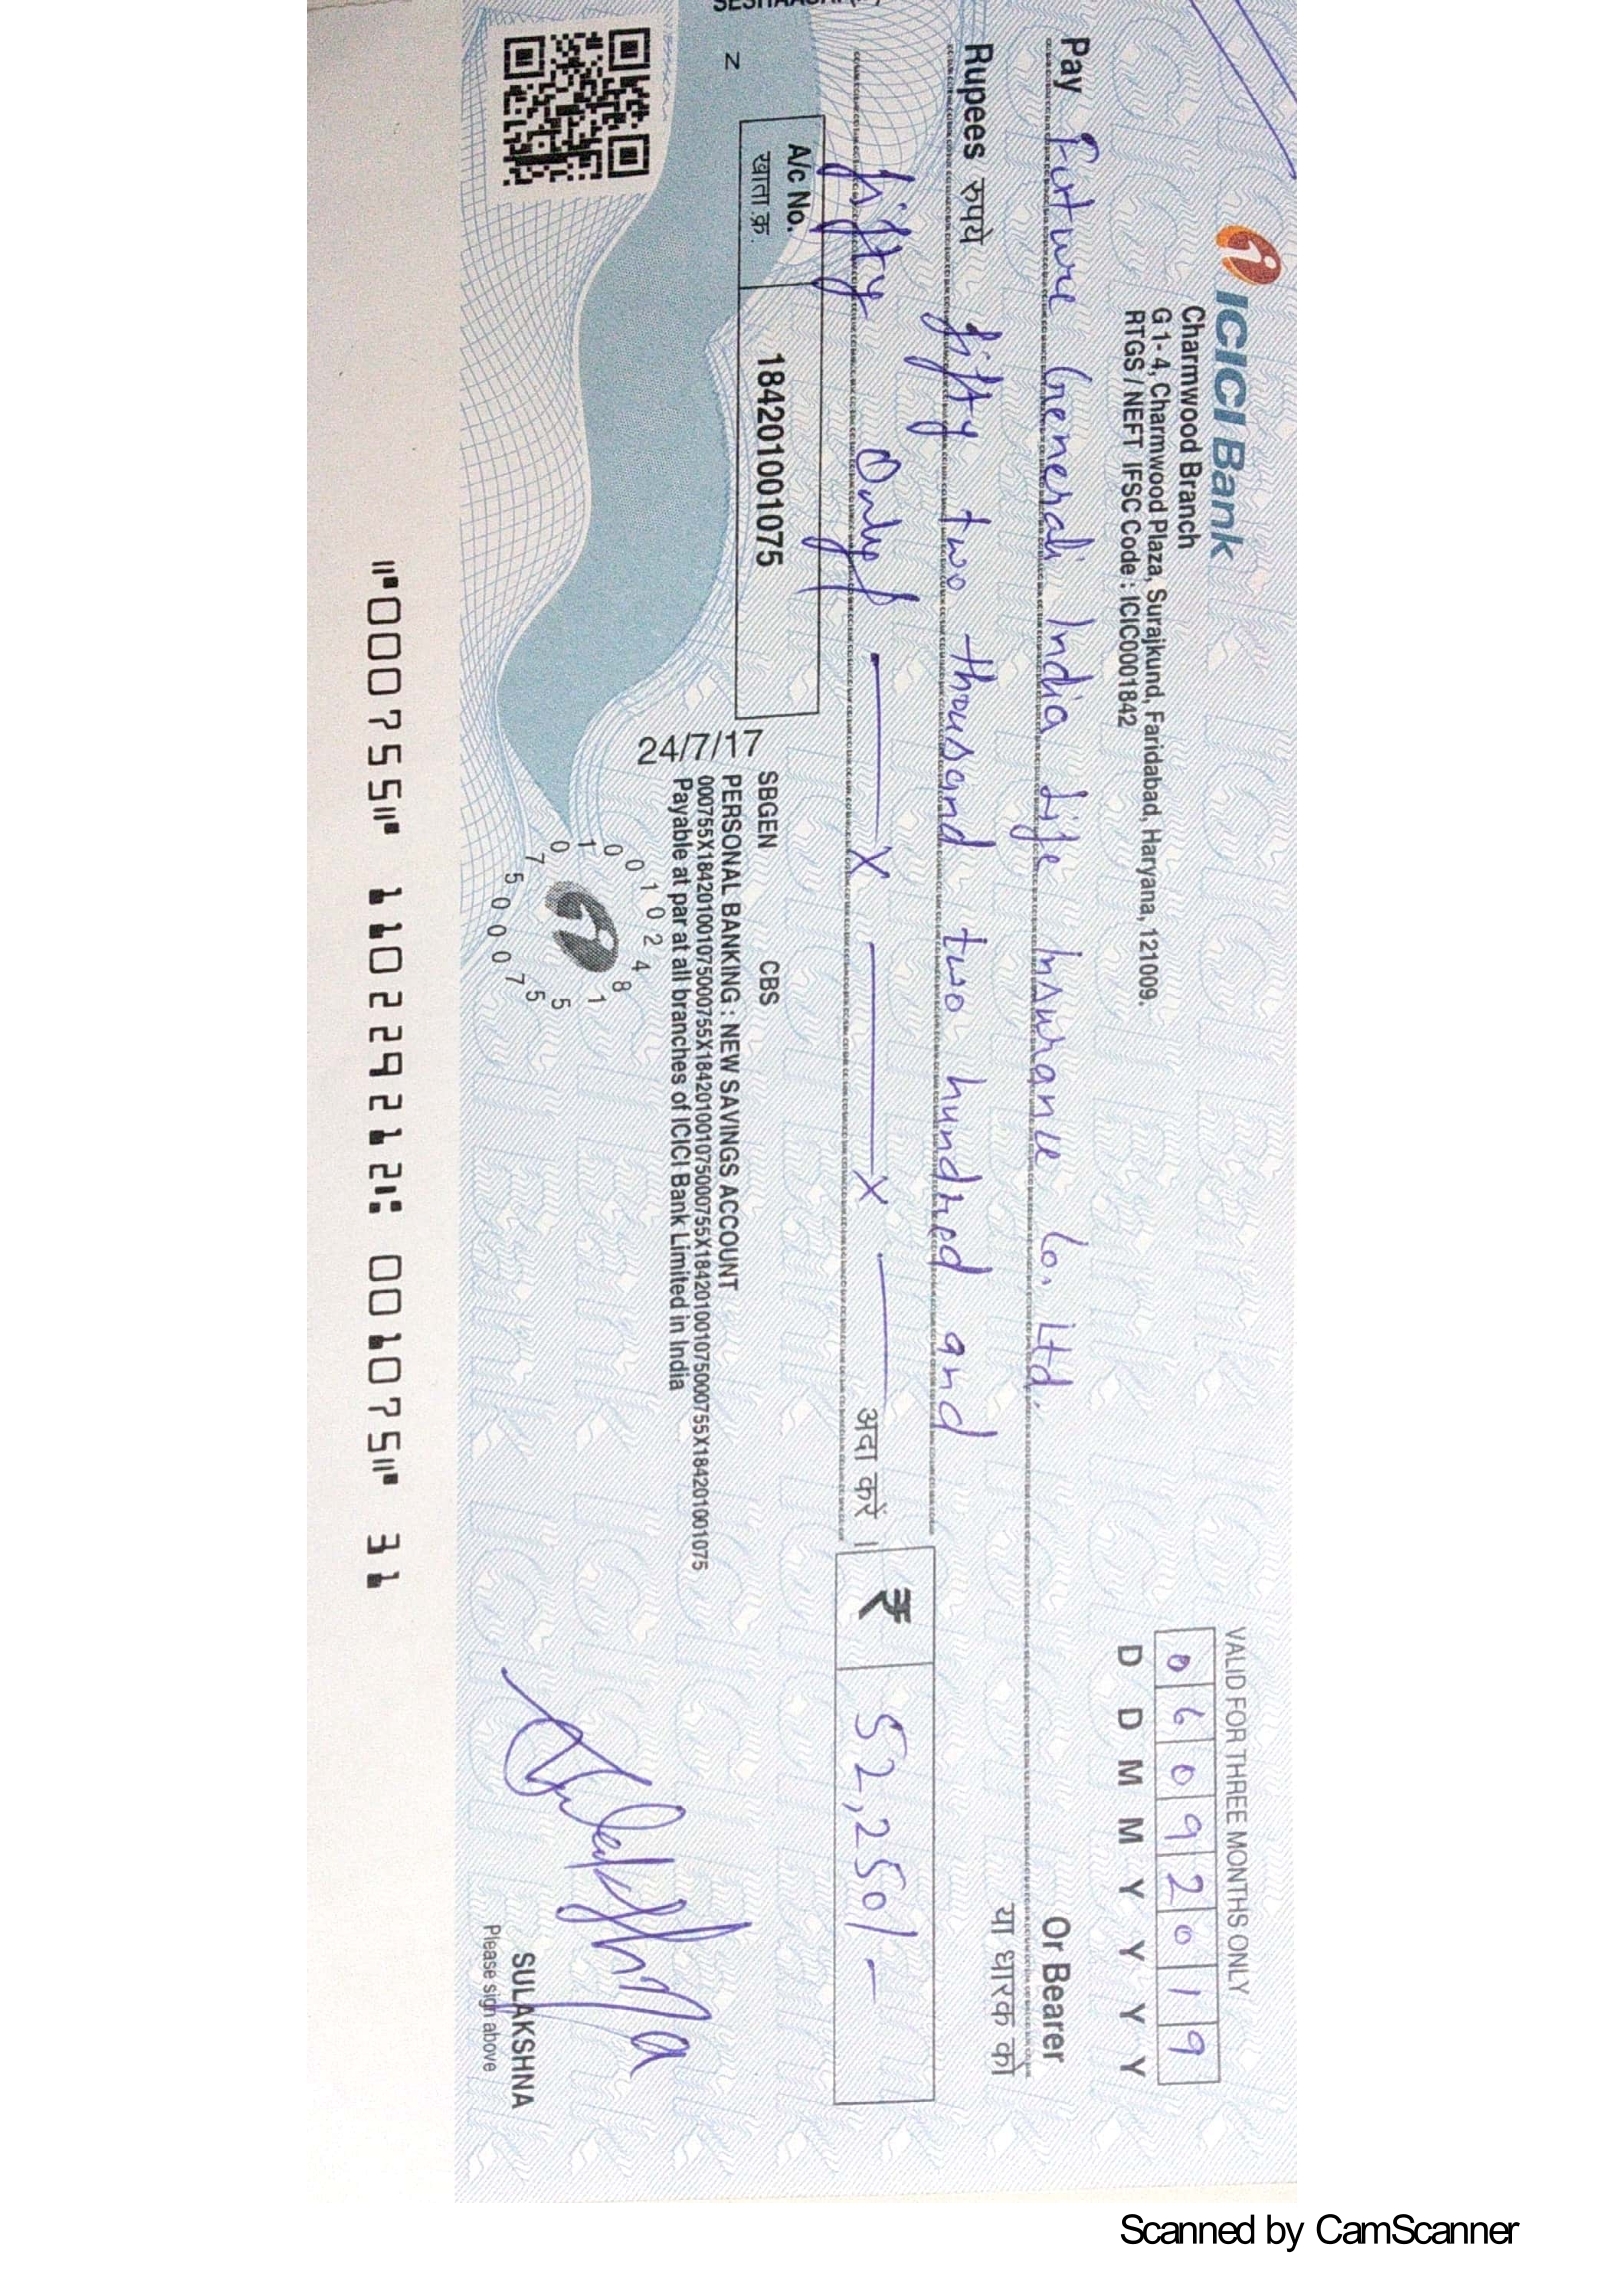 ICICI Bank
Charmwood Branch
G 1- 4, Charmwood Plaza, Surajkund, Faridabad, Haryana, 121009.
RTGS / NEFT IFSC Code : ICIC0001842
VALID FOR THREE MONTHS ONLY
0 6 0 9 2 0 1 9
D D M M Y Y Y Y
Pay Future Generali India Life Insurance Co. Ltd.
Or Bearer
या धारक को
Rupees रुपये fifty two thousand two hundred and
fifty Only/ — X — X — अदा करें ।
₹ 52,250/-
A/c No.
खाता क्र.
184201001075
SBGEN CBS
24/7/17
PERSONAL BANKING : NEW SAVINGS ACCOUNT
000755X184201001075000755X184201001075000755X184201001075000755X184201001075
Payable at par at all branches of ICICI Bank Limited in India
Z
SULAKSHNA
Please sign above
⑈000755⑈ 110229212⑆ 001075⑈ 31
Scanned by CamScanner